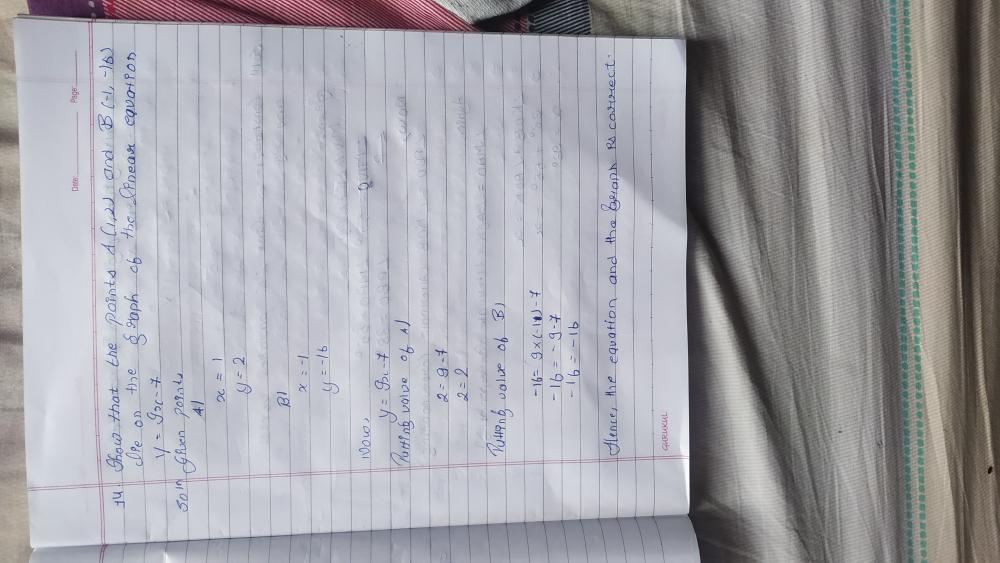 Date: Page:
14. Show that the points A (1,2) and B (-1, -16)
lie on the graph of the linear equation
y = 9x-7
Soln Given points
A)
x = 1
y = 2
B)
x = -1
y = -16
Now,
y = 9x-7
Putting value of A)
2 = 9-7
2 = 2
Putting value of B)
-16 = 9x(-1)-7
-16 = -9-7
-16 = -16
Hence, the equation and the graph is correct.
GURUKUL